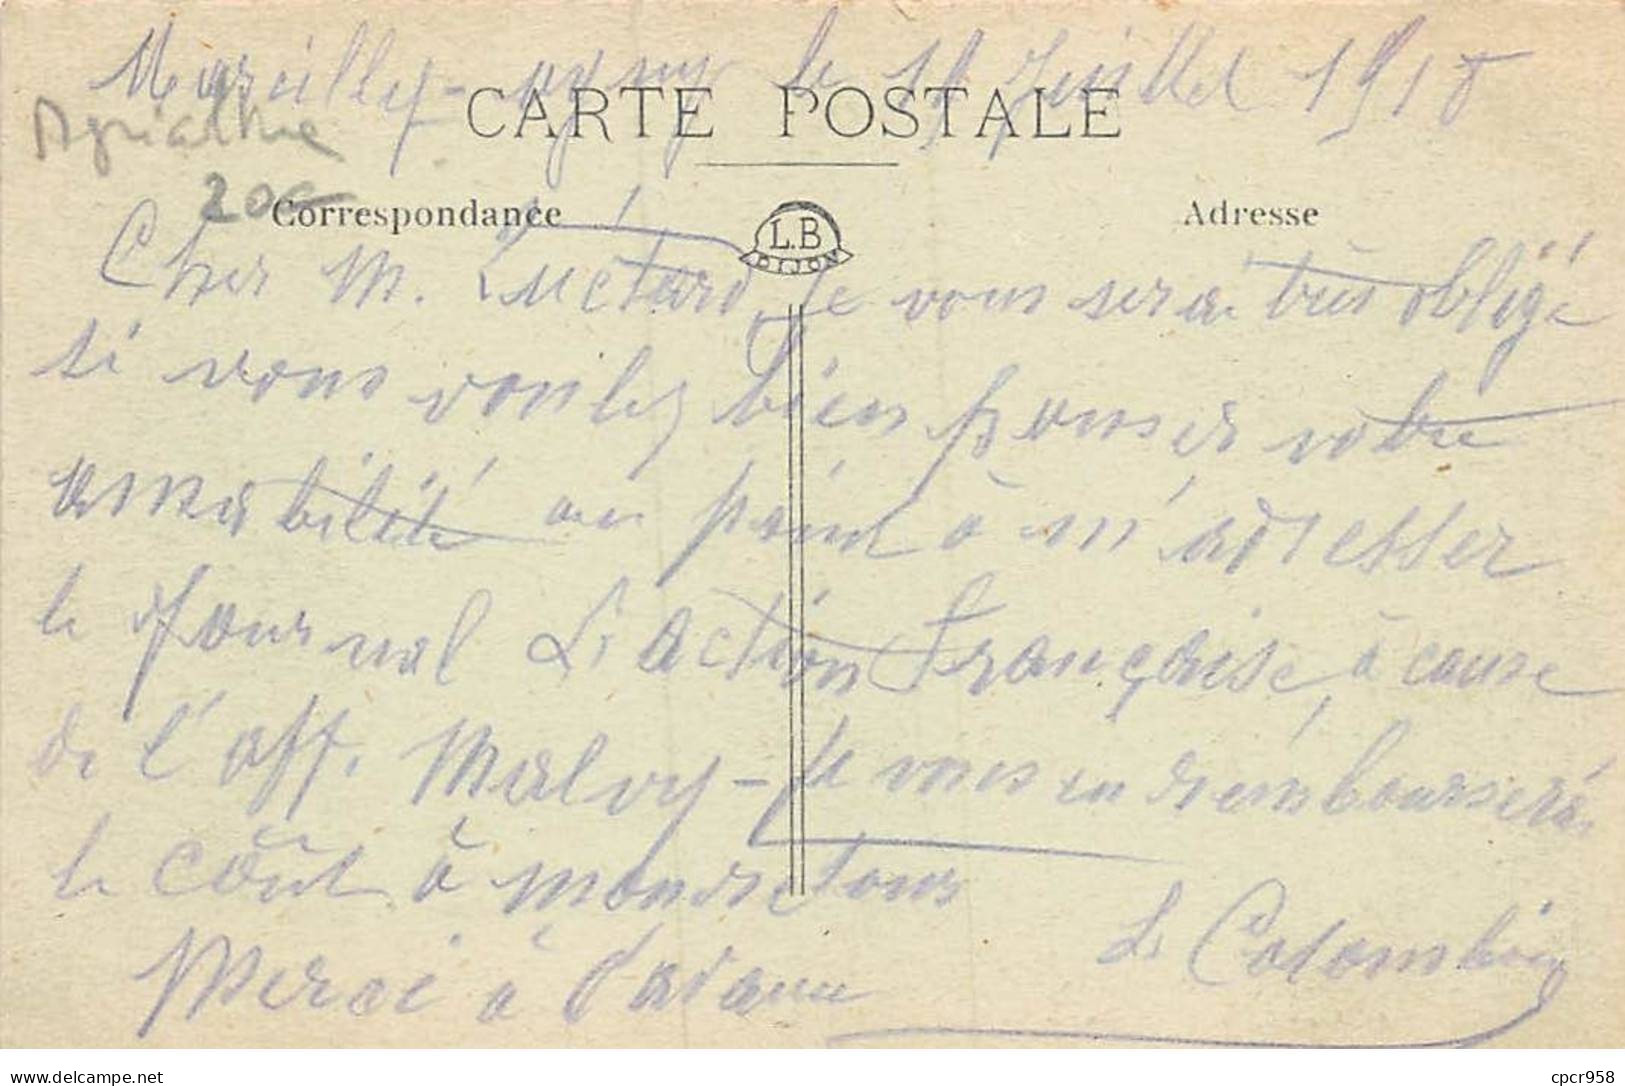 Marcilly-ogny le 19 Juillet 1918
CARTE POSTALE
Agriculture
20€
Correspondance
L.B
DIJON
Adresse
Cher M. Luctard, Je vous serai très obligé
si vous voulez bien pousser votre
amabilité au point à m'adresser
le Journal L'action Française, à cause
de l'aff. Malvy - Je vous en rembourserai
le coût à mon retour
Merci à d'avance
L. Colombin
delcampe.net
cpcr958